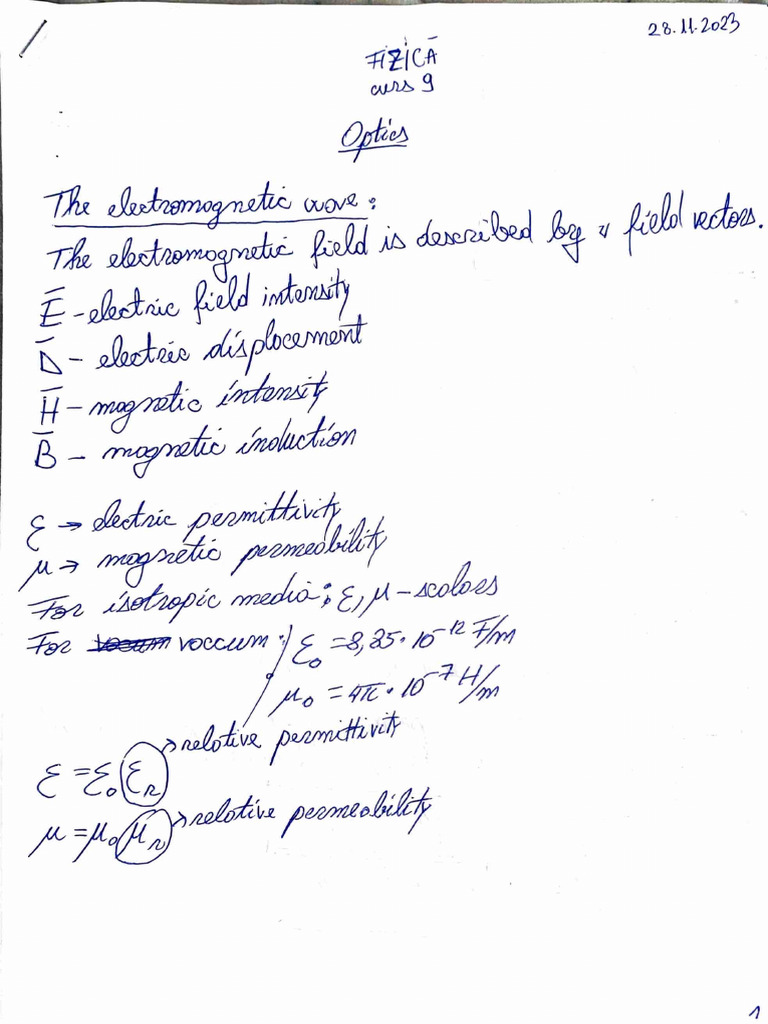 28.11.2023
FIZICĂ
curs 9
Optics
The electromagnetic wave:
The electromagnetic field is described by 4 field vectors.
E̅ - electric field intensity
D̅ - electric displacement
H̅ - magnetic intensity
B̅ - magnetic induction
ε → electric permittivity
μ → magnetic permeability
For isotropic media: ε, μ - scalars
For vaccum: ε₀ = 8,85·10⁻¹² F/m
μ₀ = 4π·10⁻⁷ H/m
ε = ε₀ εr → relative permittivity
μ = μ₀ μr → relative permeability
1